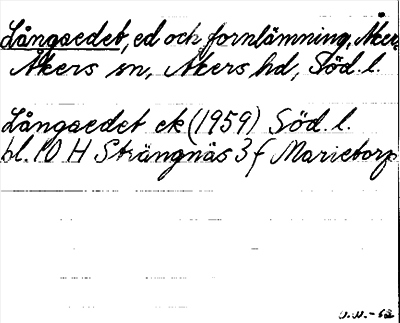 Långsedet, ed och fornlämning, Åker,
Åkers sn, Åkers hd, Söd. l.
Långsedet ek (1959) Söd. l.
bl. 10 H Strängnäs 3 f Marietorp